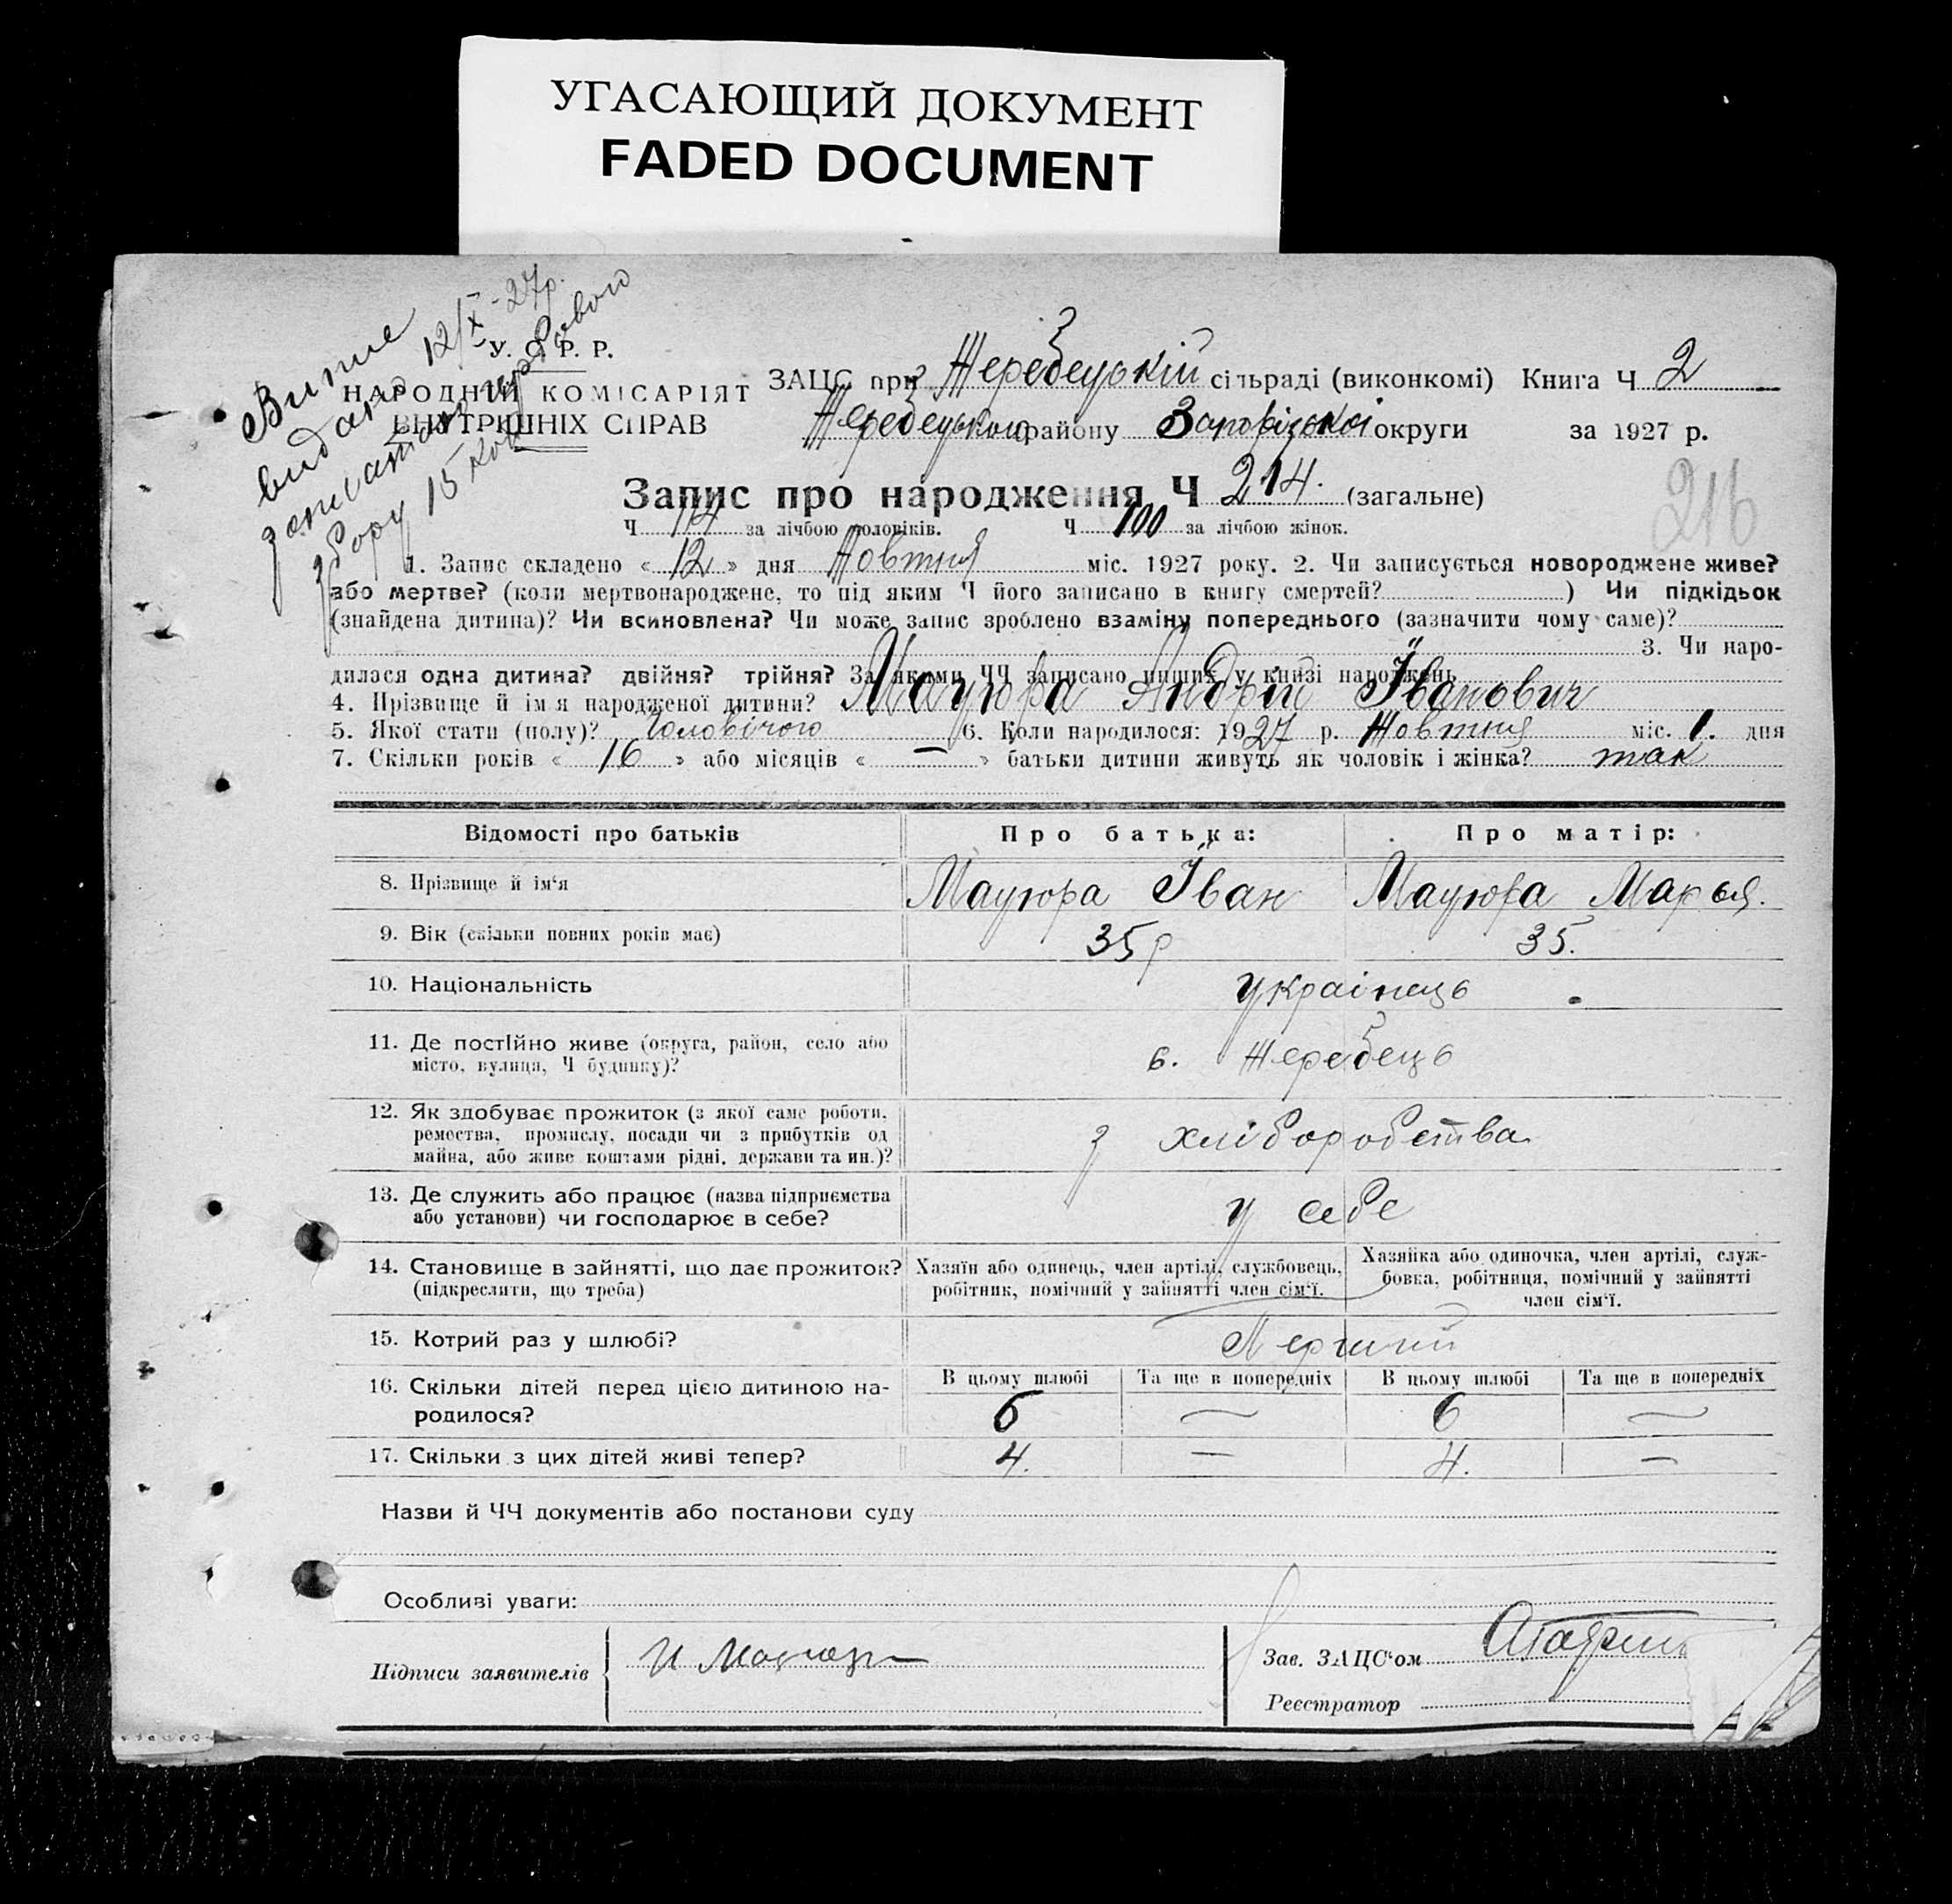 УГАСАЮЩИЙ ДОКУМЕНТ
FADED DOCUMENT
Випис
видано 12/X-27р.
збору 15 коп
У. С. Р. Р.
НАРОДНИЙ КОМІСАРІЯТ
ВНУТРІШНІХ СПРАВ
ЗАЦС при Жеребецькій сільраді (виконкомі) Книга Ч 2
Жеребецького району Запорізької округи за 1927 р.
Запис про народження Ч 214. (загальне)
216
Ч 114 за лічбою чоловіків. Ч 100 за лічбою жінок.
1. Запис складено « 12 » дня Жовтня міс. 1927 року. 2. Чи записується новороджене живе?
або мертве? (коли мертвонароджене, то під яким Ч його записано в книгу смертей? ) Чи підкідьок
(знайдена дитина)? Чи всиновлена? Чи може запис зроблено взаміну попереднього (зазначити чому саме)?
3. Чи наро-
дилася одна дитина? двійня? трійня? За якими ЧЧ записано инших у книзі народжень
4. Прізвище й ім'я народженої дитини? Мацюра Андрій Іванович
5. Якої стати (полу)? Чоловічого 6. Коли народилося: 1927 р. Жовтня міс. 1. дня
7. Скільки років « 16 » або місяців « — » батьки дитини живуть як чоловік і жінка? так
Відомості про батьків Про батька: Про матір:
8. Прізвище й ім'я Мацюра Іван Мацюра Марья.
9. Вік (скільки повних років має) 35р 35.
10. Національність Українець
11. Де постійно живе (округа, район, село або
місто, вулиця, Ч будинку)? с. Жеребець
12. Як здобуває прожиток (з якої саме роботи,
ремества, промислу, посади чи з прибутків од
майна, або живе коштами рідні, держави та ин.)? з хліборобства
13. Де служить або працює (назва підприємства
або установи) чи господарює в себе? у себе
14. Становище в зайнятті, що дає прожиток?
(підкреслити, що треба)
Хазяїн або одинець, член артілі, службовець,
робітник, помічний у зайнятті член сім'ї.
Хазяйка або одиночка, член артілі, служ-
бовка, робітниця, помічний у зайнятті
член сім'ї.
15. Котрий раз у шлюбі? Перший
В цьому шлюбі Та ще в попередніх В цьому шлюбі Та ще в попередніх
16. Скільки дітей перед цією дитиною на-
родилося? 6 — 6 —
17. Скільки з цих дітей живі тепер? 4. — 4. —
Назви й ЧЧ документів або постанови суду
Особливі уваги:
Підписи заявителів
Зав. ЗАЦС'ом
Реєстратор